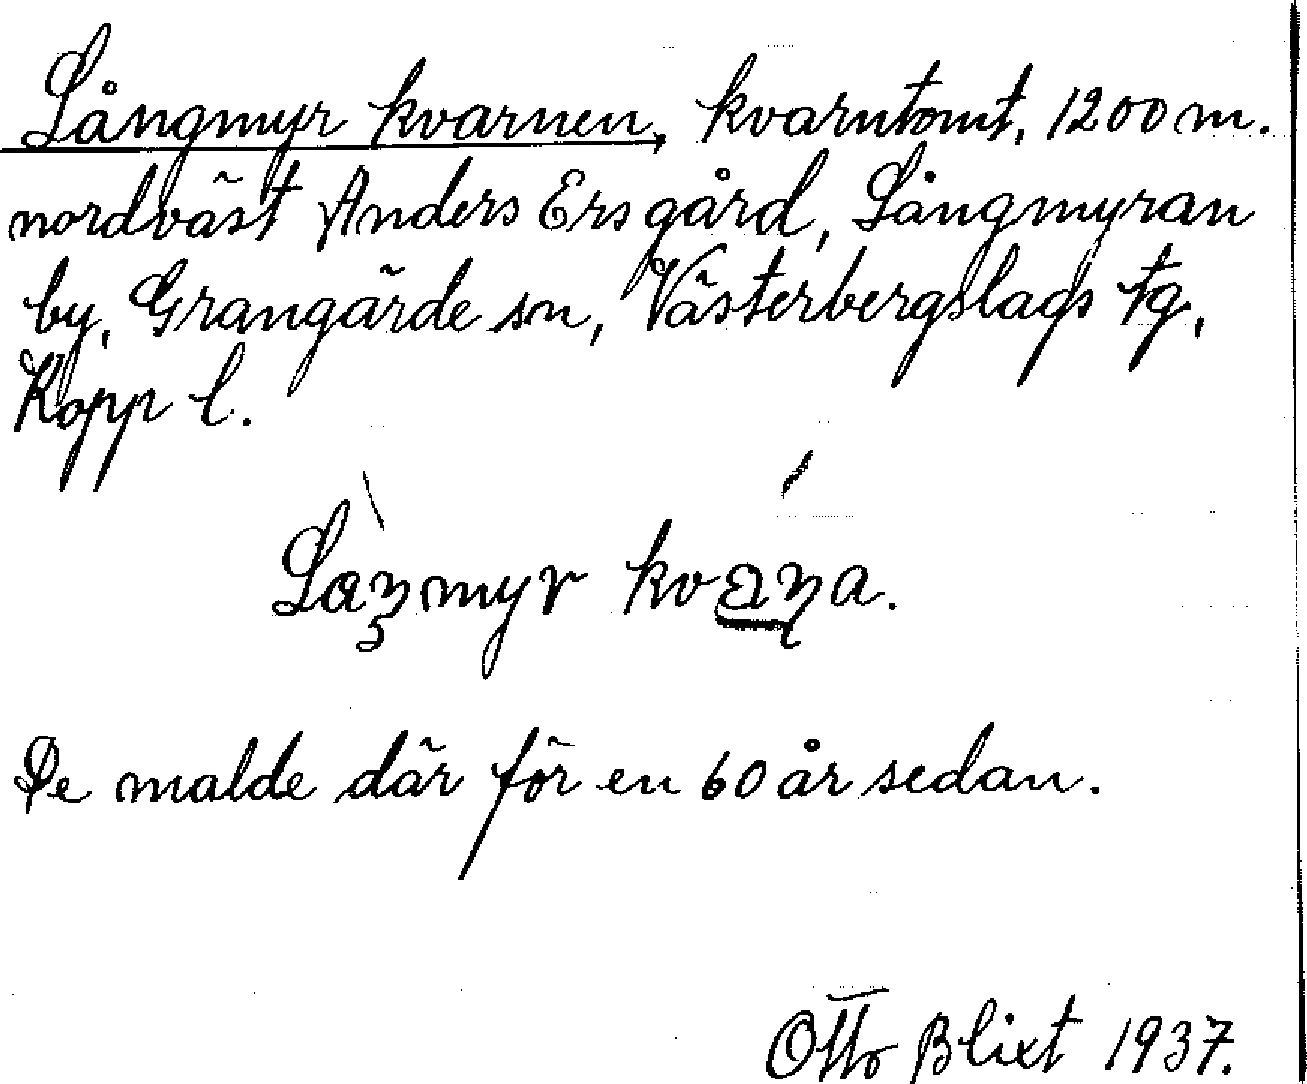 Långmyr kvarnen, kvarntomt, 1200 m.
nordväst Anders Ers gård, Långmyran
by, Grangärde sn, Västerbergslags tg,
Kopp l.
De malde där för en 60 år sedan.
Otto Blixt 1937.